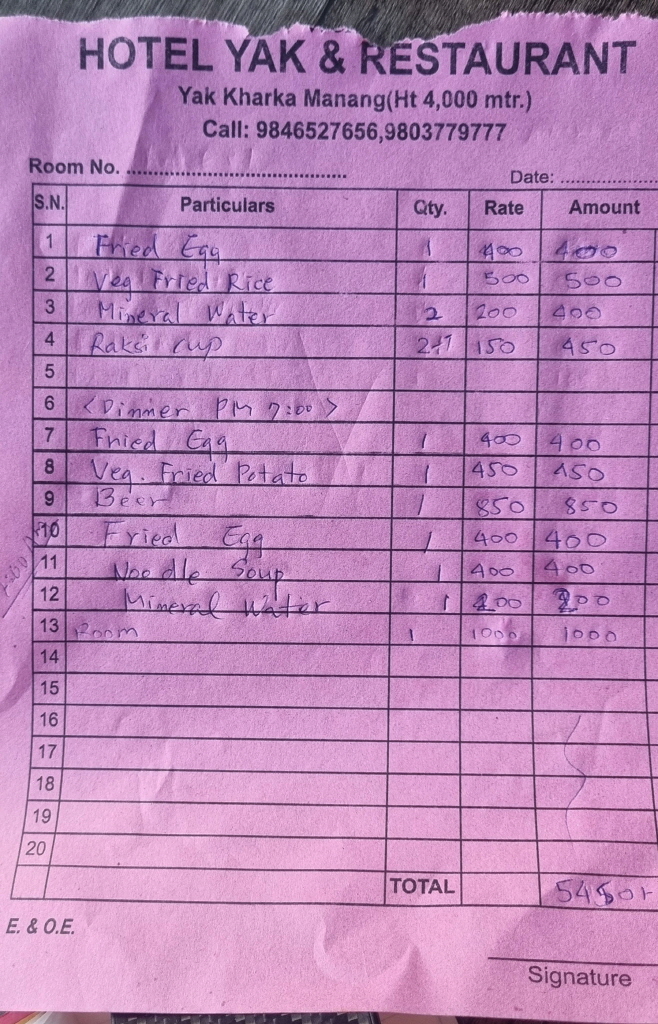 HOTEL YAK & RESTAURANT
Yak Kharka Manang(Ht 4,000 mtr.)
Call: 9846527656,9803779777
Room No. ..........................................
Date: ....................
S.N. Particulars Qty. Rate Amount
1 Fried Egg 1 400 400
2 Veg Fried Rice 1 500 500
3 Mineral Water 2 200 400
4 Raksi cup 2+1 150 450
5
6 <Dinner PM 7:00>
7 Fried Egg 1 400 400
8 Veg. Fried Potato 1 450 450
9 Beer 1 850 850
10 Fried Egg 1 400 400
11 Noodle Soup 1 400 400
12 Mineral Water 1 200 200
13 Room 1 1000 1000
14
15
16
17
18
19
20
TOTAL 5450/-
E. & O.E.
Signature